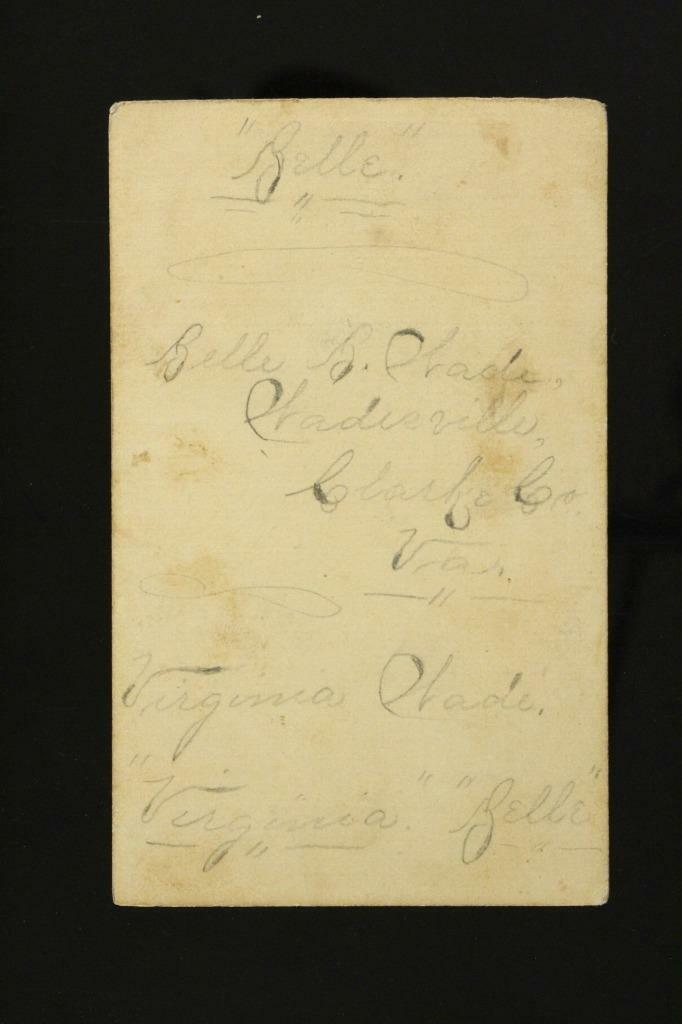 "Belle."
Belle B. Wade,
Wadesville,
Clarke Co.
Va.
Virginia Wade.
"Virginia." "Belle"